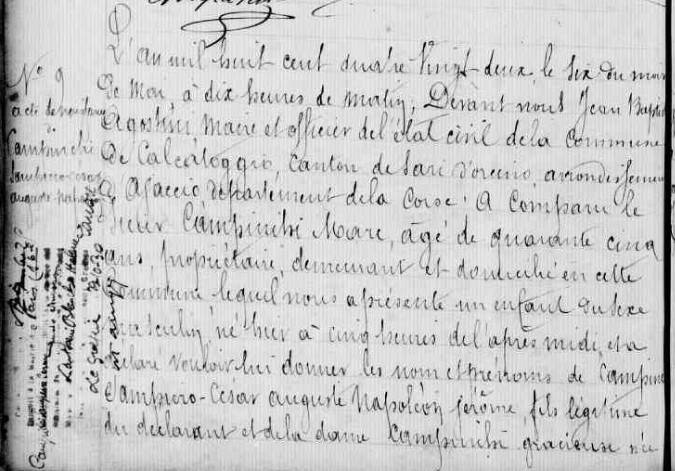 L'an mil huit cent quatre vingt-deux, le six du mois
de Mai, à dix heures de matin, Devant nous Jean Baptis
Agostini Maire et officier de l'état civil de la Commune
de Calcatoggio, Canton de Sari d'orcino, arrondissement
d'Ajaccio département de la Corse. A Comparu le
sieur Campinchi Marc, âgé de quarante cinq
ans, propriétaire, demeurant et domicilié en cette
commune lequel nous a présenté un enfant du sexe
masculin, né hier à cinq heures de l'après midi, et a
déclaré vouloir lui donner les nom et prénoms de Campinc
Sampiero-César auguste Napoléon jérôme, fils légitime
du déclarant et de la dame Campinchi gracieuse née
No 9
acte de naissance
Campinchi
Sampiero César
auguste